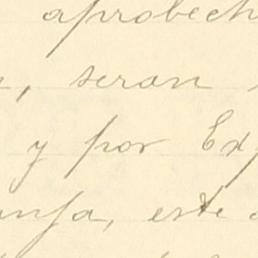 aprobech
, seran
y por Exp
anja, este